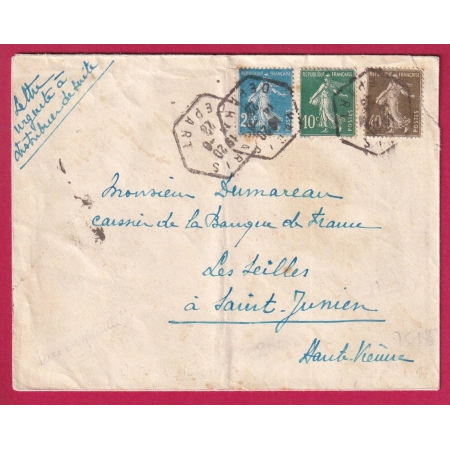 Lettre
urgente à
distribuer de suite
REPUBLIQUE FRANCAISE
REPUBLIQUE FRANCAISE
10c
POSTES
POSTES
PARIS
DEPART
Monsieur Dumareau
caissier de la Banque de France
Les Seilles
à Saint-Junien
Haute Vienne